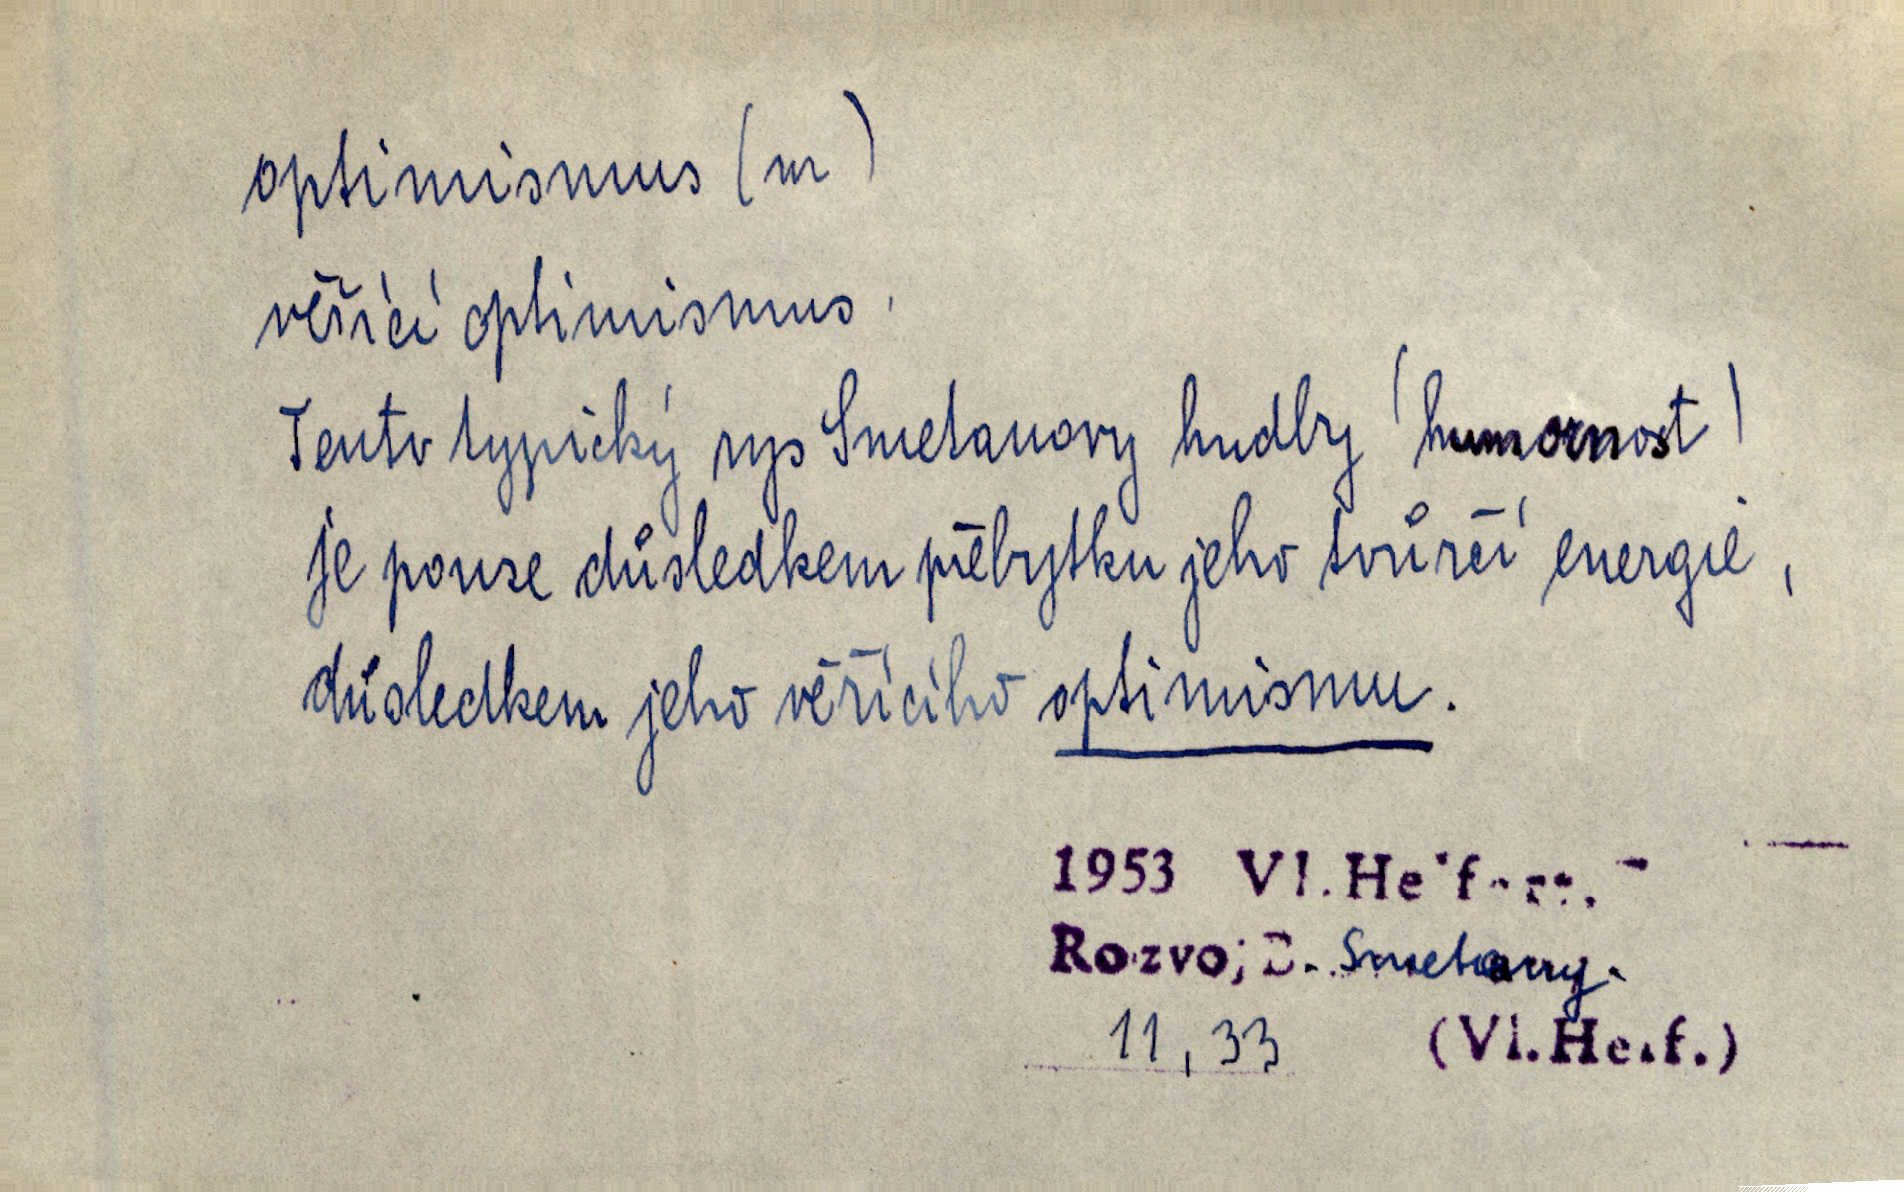 optimismus (m)
věřící optimismus.
Tento typický rys Smetanovy hudby (humornost)
je pouze důsledkem přebytku jeho tvůrčí energie,
důsledkem jeho věřícího optimismu.
1953 Vl. Helfert,
Rozvoj B. Smetany.
11, 33 (Vl. Helf.)